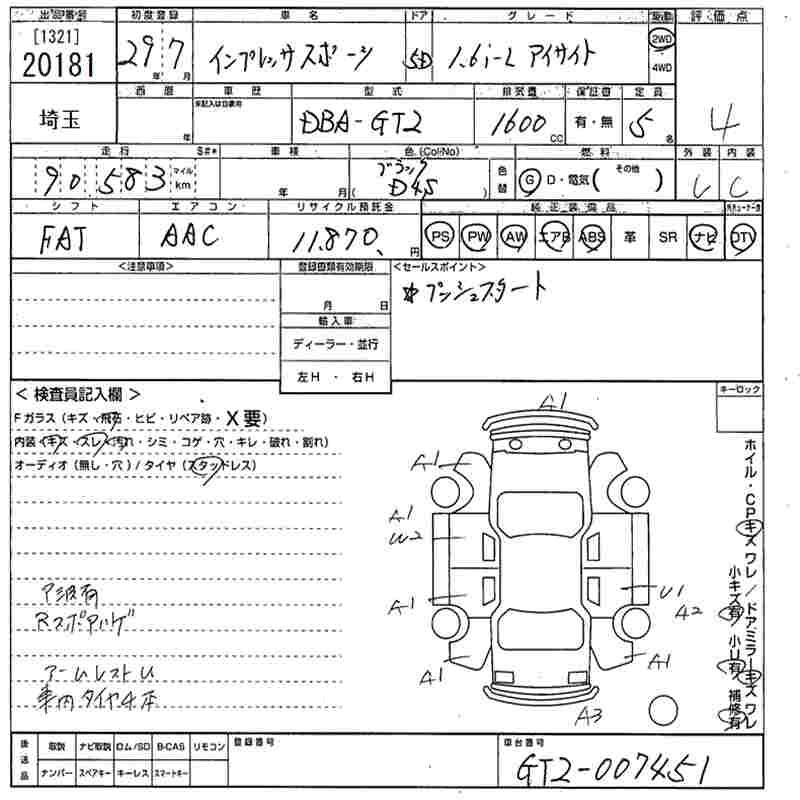 出品番号 初度登録 車名 ドア グレード 駆動 評価点
[1321] 20181 29 7 年 月 インプレッサスポーツ 5D 1.6i-L アイサイト 2WD 4WD 4
埼玉 西暦 年 車歴 未記入は自家用 型式 DBA-GT2 排気量 1600 CC 保証書 有・無 定員 5 名
走行 S#* 車検 色(ColNo) 燃料 外装 内装
90 583 マイル km 年 月 ブラック D4S 色替 G D・電気( その他 ) C
シフト エアコン リサイクル預託金 純正装備品
FAT AAC 11,870 円 PS PW AW エアB ABS 革 SR ナビ DTV
<注意事項> 登録書類有効期限 <セールスポイント>
プッシュスタート
月 日
輸入車
ディーラー・並行
左H ・ 右H
<検査員記入欄> キーロック
Fガラス(キズ・飛石・ヒビ・リペア跡・X要)
内装(キズ・スレ・汚れ・シミ・コゲ・穴・キレ・破れ・割れ)
オーディオ(無し・穴)/タイヤ(スタッドレス)
A1
A1
A1
W2
A1 U1 A2
A1 A1
A3
ホイル・CPキズ ワレ/ドアミラーキズ ワレ
小キズ有 小U有 補修有
ア波有
Rスポアハゲ
アームレストU
車内タイヤ4本
後送品 取説 ナビ取説 ロム/SD B-CAS リモコン 登録番号 車台番号
ナンバー スペアキー キーレス スマートキー GT2-007451